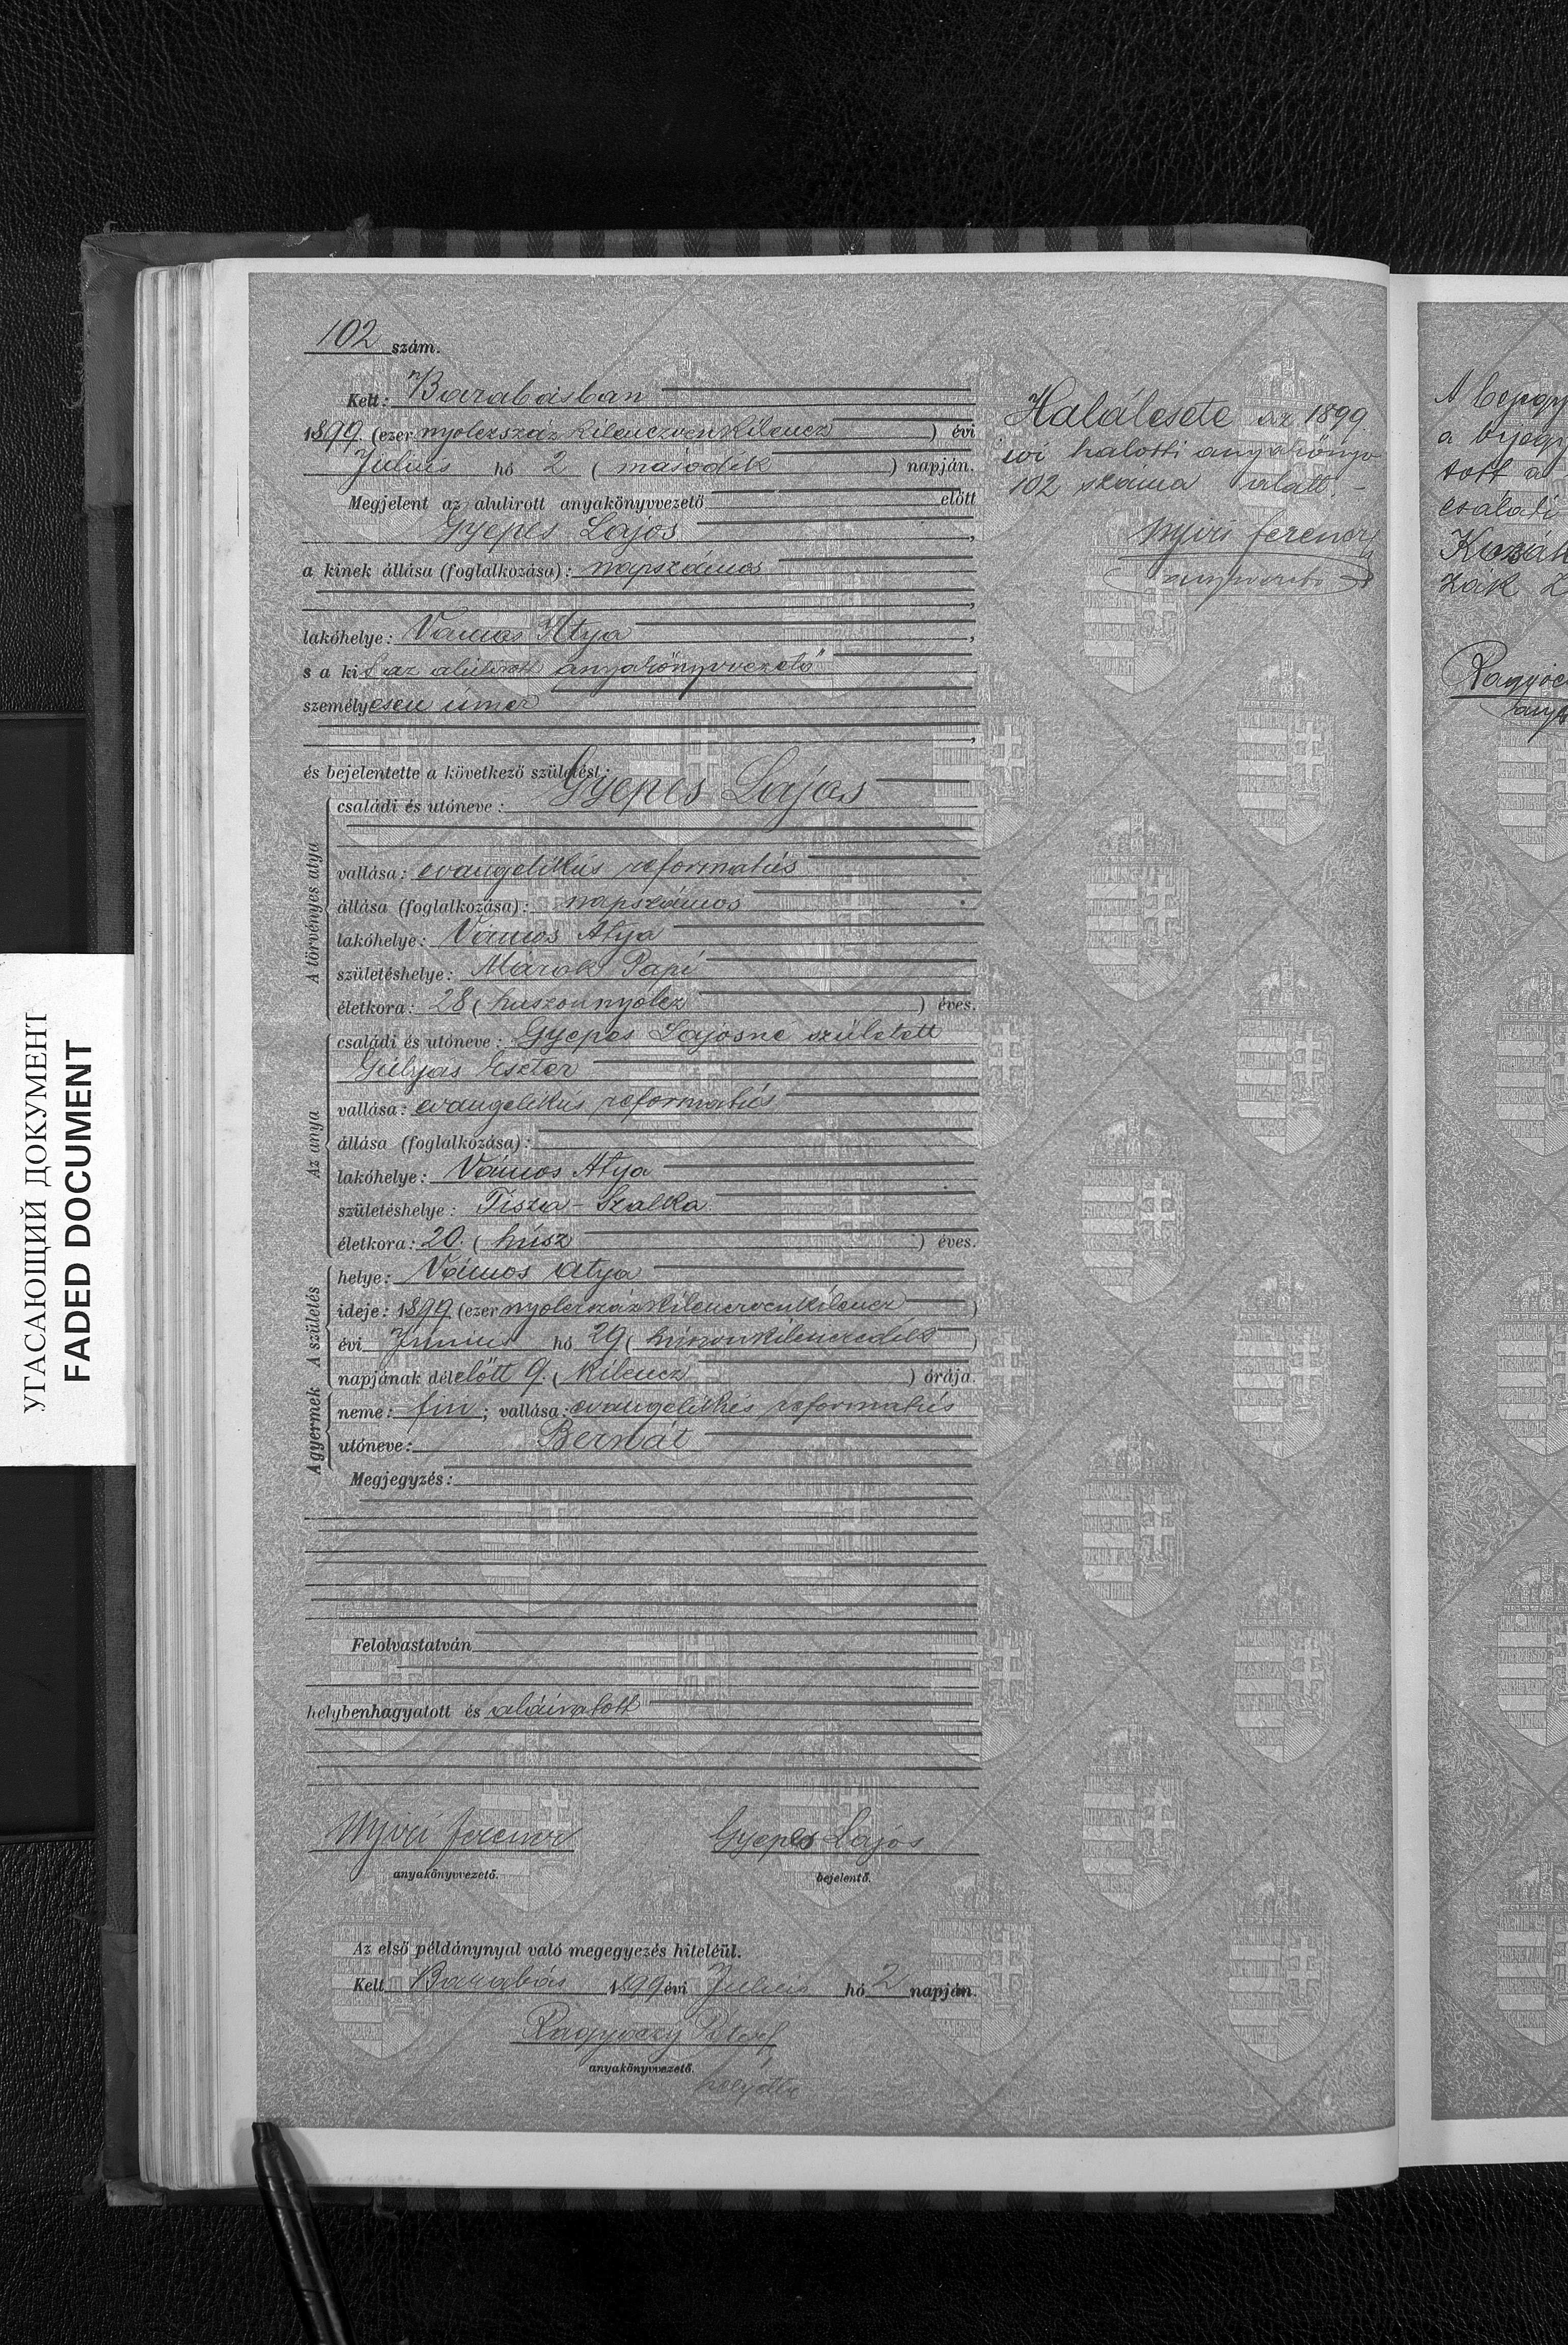 102 szám.
Kelt: Barabásban
1899. (ezer nyolczszáz kilenczvenkilencz ) évi
Július hó 2 ( második ) napján.
Megjelent az alulirott anyakönyvvezető előtt
Gyepes Lajos ,
a kinek állása (foglalkozása): napszámos
,
lakóhelye: Vámos Atya ,
s a kit az alulirott anyakönyvvezető
személyesen ismer
,
és bejelentette a következő születést:
A törvényes atya
családi és utóneve: Gyepes Lajos
vallása: evangelikus reformatus
állása (foglalkozása): napszámos
lakóhelye: Vámos Atya
születéshelye: Márok Papi
életkora: 28 ( huszonnyolcz ) éves.
Az anya
családi és utóneve: Gyepes Lajosné született
Gulyás Eszter
vallása: evangelikus reformatus
állása (foglalkozása):
lakóhelye: Vámos Atya
születéshelye: Tisza-Szalka
életkora: 20. ( húsz ) éves.
A születés
helye: Vámos Atya
ideje: 1899 (ezer nyolczszázkilenczvenkilencz )
évi Junius hó 29 ( huszonkilenczedik )
napjának délelőtt 9. ( kilencz ) órája.
A gyermek
neme: fiu ; vallása: evangelikus reformatus
utóneve: Bernát
Megjegyzés:
Felolvastatván
helybenhagyatott és aláiratott
Nyiri Ferencz Gyepes Lajos
anyakönyvvezető. bejelentő.
Az első példánynyal való megegyezés hiteléül.
Kelt Barabás 1899 évi Julius hó 2 napján.
anyakönyvvezető.
helyettes
Halálesete az 1899.
évi halotti anyakönyv
102 száma alatt.-
Nyiri Ferencz
УГАСАЮЩИЙ ДОКУМЕНТ
FADED DOCUMENT
tott a
családi